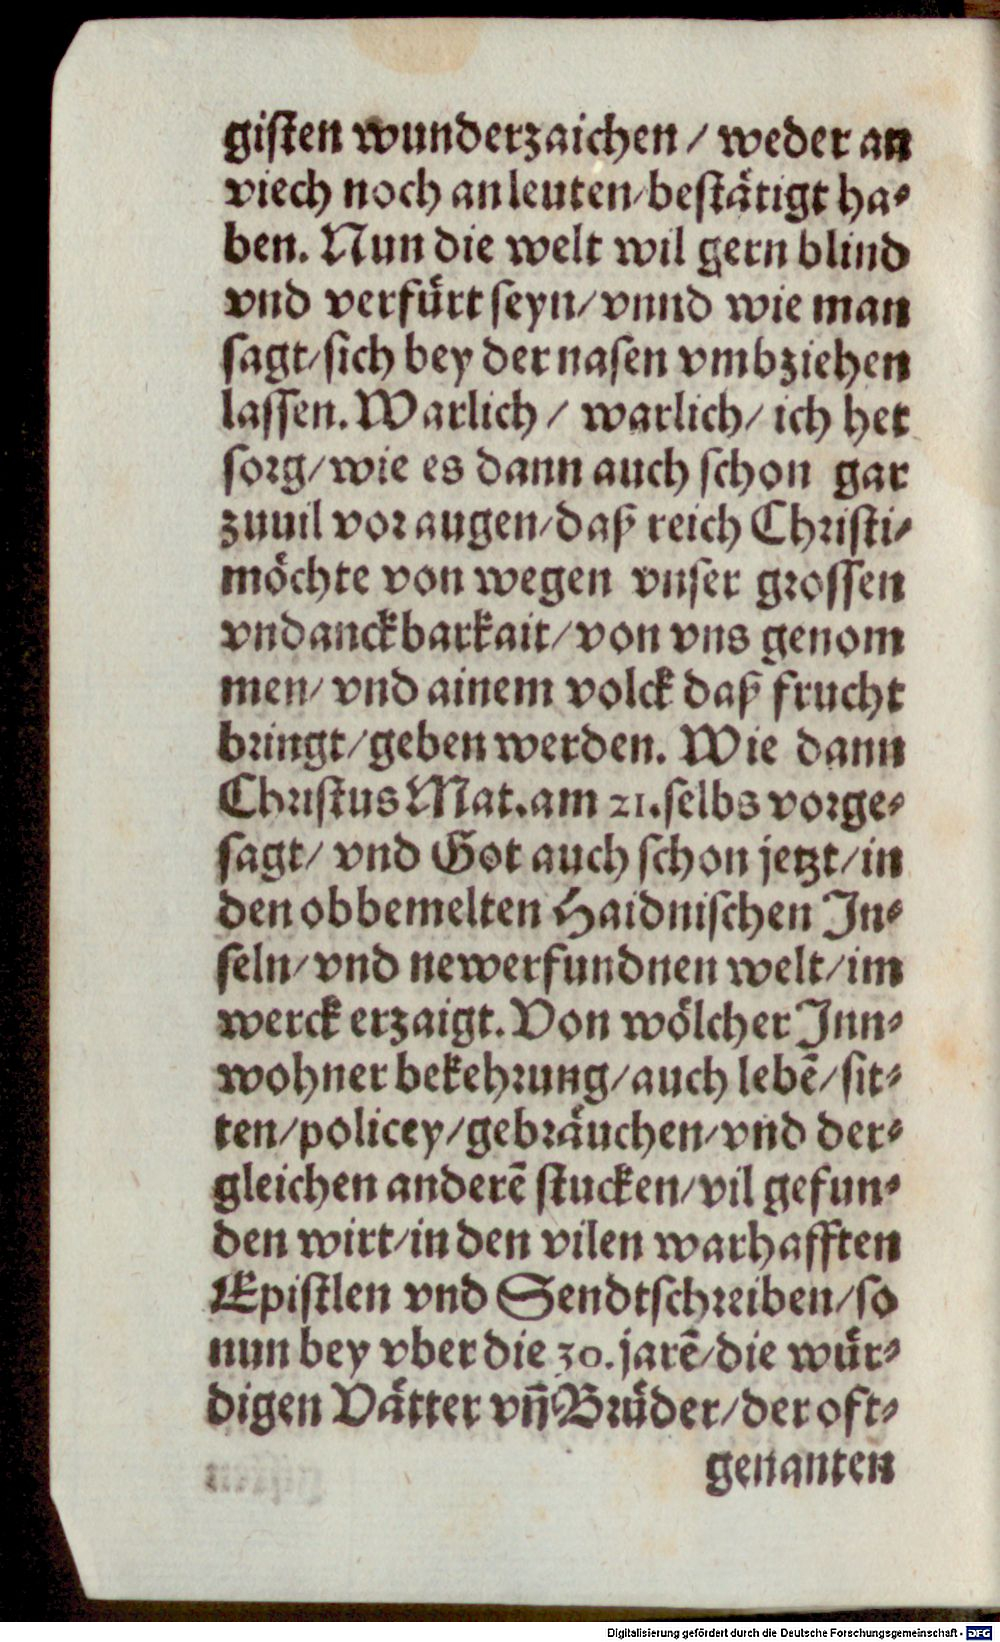 gisten wunderzaichen / weder an
viech noch an leuten/bestätigt ha⸗
ben. Nun die welt wil gern blind
vnd verfürt seyn/ vnnd wie man
sagt/sich bey der nasen vmbziehen
lassen. Warlich / warlich/ ich het
sorg/wie es dann auch schon gar
zuuil vor augen/daß reich Christi⸗
möchte von wegen vnser grossen
vndanckbarkait/von vns genom
men/ vnd ainem volck daß frucht
bringt/geben werden. Wie dann
Christus Mat.am 21.selbs vorge⸗
sagt/ vnd Got auch schon jetzt/in
den obbemelten Haidnischen In⸗
seln/vnd newerfundnen welt/im
werck erzaigt. Von wölcher Inn⸗
wohner bekehrung/auch lebẽ/sit⸗
ten/policey/gebräuchen/vnd der⸗
gleichen anderẽ stucken/vil gefun⸗
den wirt/in den vilen warhafften
Epistlen vnd Sendtschreiben/so
nun bey vber die 30.jarẽ/die wür⸗
digen Vätter vñ Brüder/der oft⸗
genanten
Digitalisierung gefördert durch die Deutsche Forschungsgemeinschaft - DFG